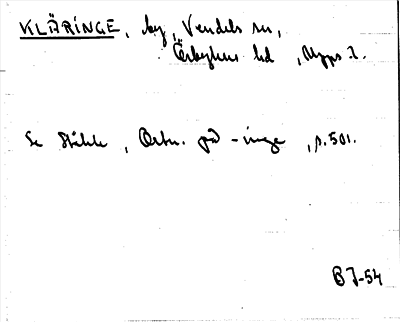 KLÄRINGE, by, Vendels sn,
Örbyhus hd, Upps. l.
Se Ståhle, Ortn. på -inge, s. 501.
BJ-54